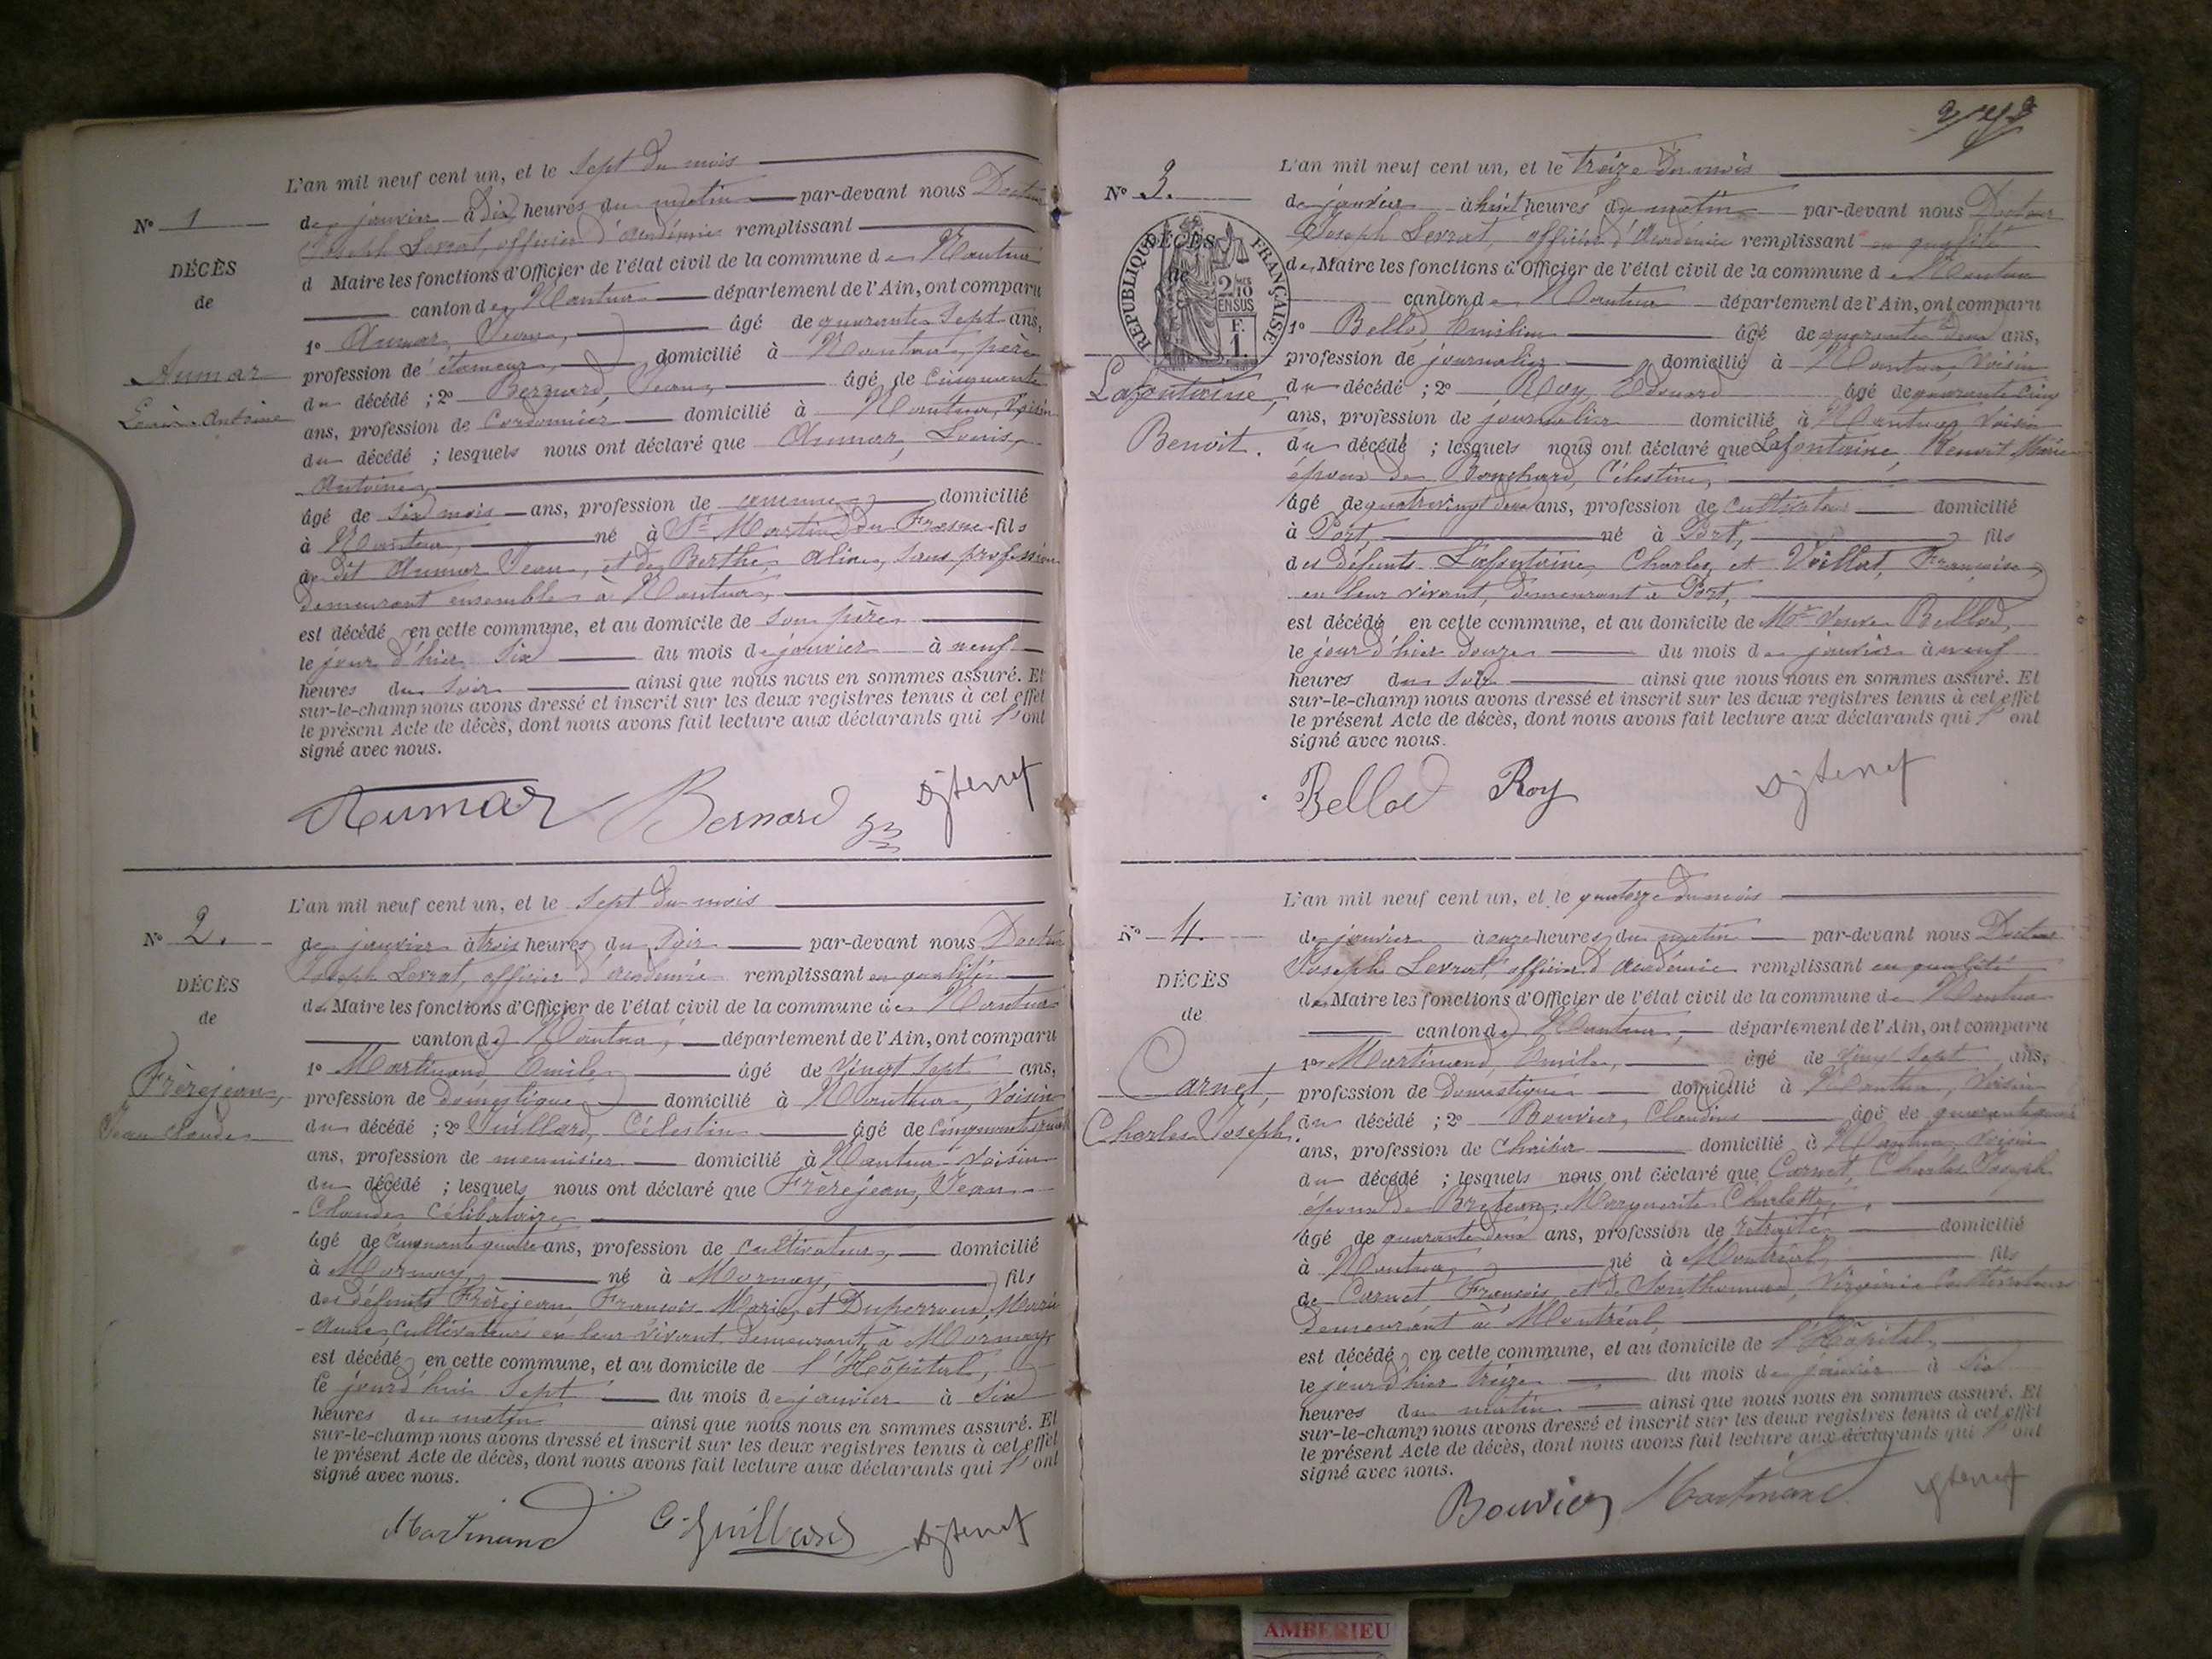 L'an mil neuf cent un, et le sept du mois
N° 1
de janvier à dix heures du matin par-devant nous Docteur
Joseph Levrat, officier d'Académie remplissant
DÉCÈS
d Maire les fonctions d'Officier de l'état civil de la commune de Nantua
de
canton de Nantua département de l'Ain, ont comparu
1° Aumar, Jean, âgé de quarante sept ans,
profession de étameur, domicilié à Nantua, père
Aumar
Louis Antoine
du décédé ; 2° Bernard, Jean, âgé de cinquante
ans, profession de Cordonnier domicilié à Nantua, voisin
du décédé ; lesquels nous ont déclaré que Aumar, Louis,
Antoine,
âgé de six mois ans, profession de aucune, domicilié
à Nantua, né à St Martin du Fresne fils
de dit Aumar Jean, et de Berthe, Aline, sans profession
demeurant ensemble à Nantua,
est décédé en cette commune, et au domicile de son père
le jour d'hier six du mois de janvier à neuf
heures du soir ainsi que nous nous en sommes assuré. Et
sur-le-champ nous avons dressé et inscrit sur les deux registres tenus à cet effet
le présent Acte de décès, dont nous avons fait lecture aux déclarants qui l'ont
signé avec nous.
Aumar Bernard
L'an mil neuf cent un, et le sept du mois
N° 2.
de janvier à trois heures du soir par-devant nous Docteur
Joseph Levrat, officier d'Académie remplissant en qualité
DÉCÈS
de Maire les fonctions d'Officier de l'état civil de la commune de Nantua
de
canton de Nantua, département de l'Ain, ont comparu
1° Martinand, Emile, âgé de vingt sept ans,
Frèrejean,
Jean Claude
profession de domestique, domicilié à Nantua, voisin
du décédé ; 2° Guillard, Célestin âgé de cinquante
ans, profession de menuisier domicilié à Nantua voisin
du décédé ; lesquels nous ont déclaré que Frèrejean, Jean
Claude, célibataire,
âgé de cinquante quatre ans, profession de cultivateur, domicilié
à Mornay, né à Mornay, fils
des défunts Frèrejean, François Marie, et Duperroux, Marie
Anne, cultivateurs en leur vivant demeurant à Mornay,
est décédé en cette commune, et au domicile de l'Hôpital,
le jourd'hui sept du mois de janvier à six
heures du matin ainsi que nous nous en sommes assuré. Et
sur-le-champ nous avons dressé et inscrit sur les deux registres tenus à cet effet
le présent Acte de décès, dont nous avons fait lecture aux déclarants qui l'ont
signé avec nous.
Martinand C. Guillard
L'an mil neuf cent un, et le treize du mois
N° 3.
de janvier à huit heures du matin par-devant nous Docteur
Joseph Levrat, officier d'Académie remplissant en qualité
DÉCÈS
de
RÉPUBLIQUE FRANÇAISE
2/10 EN SUS
F. 1.
de Maire les fonctions d'Officier de l'état civil de la commune de Nantua
canton de Nantua département de l'Ain, ont comparu
1° Bellod, Emilien âgé de quarante deux ans,
profession de journalier domicilié à Nantua, voisin
Lafontaine,
Benoit.
du décédé ; 2° Roy Edouard âgé de quarante cinq
ans, profession de journalier domicilié à Nantua, voisin
du décédé ; lesquels nous ont déclaré que Lafontaine, Benoit Marie
époux de Bouchard, Célestine,
âgé de quatre vingt deux ans, profession de cultivateur domicilié
à Port, né à Port, fils
des défunts Lafontaine, Charles, et Voillat, Françoise,
en leur vivant, demeurant à Port,
est décédé en cette commune, et au domicile de Me Veuve Bellod,
le jour d'hier douze du mois de janvier à neuf
heures du soir ainsi que nous nous en sommes assuré. Et
sur-le-champ nous avons dressé et inscrit sur les deux registres tenus à cet effet
le présent Acte de décès, dont nous avons fait lecture aux déclarants qui l'ont
signé avec nous.
Bellod Roy
L'an mil neuf cent un, et le quatorze du mois
N° 4.
de janvier à onze heures du matin par-devant nous Docteur
Joseph Levrat, officier d'Académie remplissant en qualité
DÉCÈS
de Maire les fonctions d'Officier de l'état civil de la commune de Nantua
de
canton de Nantua, département de l'Ain, ont comparu
1° Martinand, Emile, âgé de vingt sept ans,
Carnet,
Charles Joseph.
profession de domestique domicilié à Nantua, voisin
du décédé ; 2° Bouvier, Claudius âgé de
ans, profession de chaisier domicilié à Nantua, voisin
du décédé ; lesquels nous ont déclaré que Carnet, Charles Joseph
époux de Marguerite Charlotte,
âgé de quarante deux ans, profession de retraité domicilié
à Nantua, né à Montréal, fils
de Carnet François, et de Virginie cultivateurs
demeurant à Montréal,
est décédé en cette commune, et au domicile de l'Hôpital,
le jour d'hier treize du mois de janvier à six
heures du matin ainsi que nous nous en sommes assuré. Et
sur-le-champ nous avons dressé et inscrit sur les deux registres tenus à cet effet
le présent Acte de décès, dont nous avons fait lecture aux déclarants qui l'ont
signé avec nous.
Bouvier Martinand
AMBERIEU